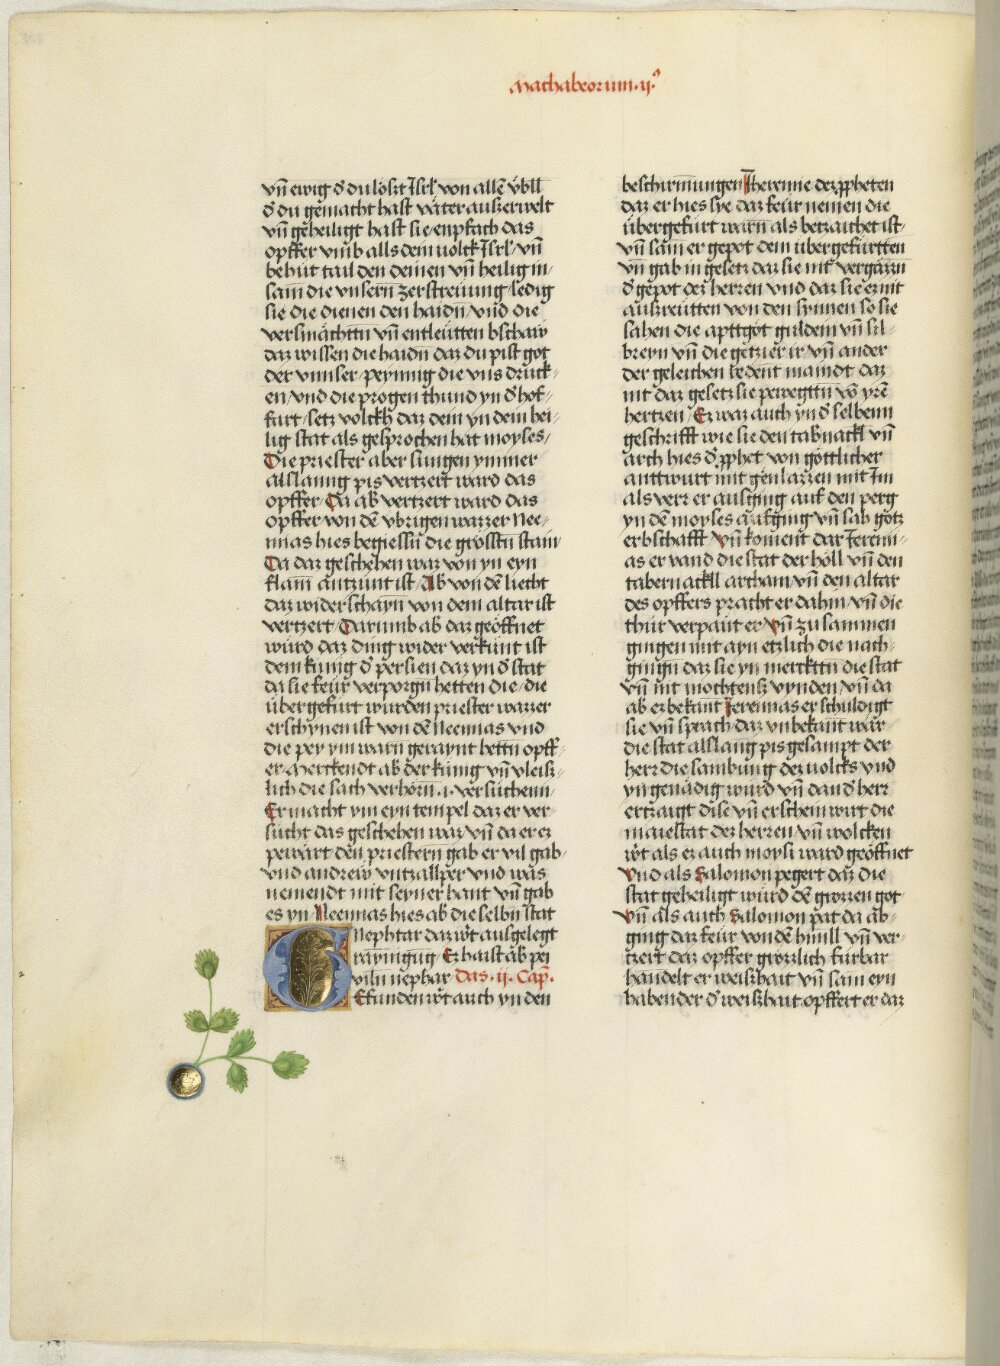 Machabeorum .ij.o
vn̄ ewig d̄ du löszt Isrl̄ von allē v̈bll
d̄ du gemacht hast väter auszerwelt
vn̄ geheiligt hast sie / enpfach das
opffer vmb alls dein uolck Isrl̄ / vn̄
behüt tail den deinen vn̄ heilig in/
sam die vnsern zerstreüung / ledig
sie die dienen den haidn̄ / vnd die
versmächttn̄ vn̄ entleütten bschaw
daz wissen die haidn̄ daz du pist got
der vnnser / peynnig die vns druck/
en / vnd die progen thund yn d̄ hof/
fart / setz volckh daz dein yn dein hei/
lig stat als gesprochen hat moyses /
Die priester aber sungen ymner
alslanng pis vertzert ward das
opffer Da ab vertzert ward das
opffer von dē vbrigen wazzer Nee/
mias hies begiessn̄ die grosstn̄ stain
Da daz geschehen waz von yn eyn
flam̄ äntzünt ist / Ab von dē liecht
daz widerschayn̄ von dem altar ist
vertzert / Darumb ab daz geöffnet
würd daz ding wider verkünt ist
dem kunig d̄ persien daz yn d̄ stat
da sie feür verporgn̄ hetten die / die
übergefürt würden priester wazzer
erschynen ist von dē Neemias vnd
die pey ym warn geraynt hettn̄ opff/
er Merckendt ab der kunig vn̄ vleisz/
lich die sach verhörn .i. versuchenn
Er macht ym eyn tempel daz er ver/
sücht das geschehen waz / vn̄ da er ez
pewärt den priestern gab er vil gab/
vnd andrew vntzallper vnd was
nemendt mit seyner hant vn̄ gab
es yn Neemias hies ab die selbn̄ stat
Nephtar daz wt̄ ausgelegt
rayingūg Ez haist ab pei
viln nephar Das .ij. Cap̄.
Efunden wt̄ auch yn den
beschirmungen Iheremie dez pp̄heten
daz er hies sye daz feür nemen die
übergefürt warn̄ als betzaichet ist/
vn̄ sam er gepot dem übergefürtten
vn̄ gab in gesetz daz sie nit̄ vergäzzn̄
d̄ gepot dez herren vnd daz sie er nit
auszreütten von den synnen so sie
sahen die apttgöt guldein vn̄ sil/
breyn vn̄ die getzier ir / vn̄ ander
der geleichen redent maindt daz
nit daz gesetz sie pewegttn̄ vō yrē
hertzen / Ez waz auch yn d̄ selbenn
geschrifft wie sie den tab̄nackl vn̄
arch hies d̄ pp̄het von göttlicher
anttwurt mit gen̄ lazzen mit Im
als verz er ausging auf den perg
yn dē moyses aufging vn̄ sah gotz
erbschafft / Vn̄ koment dar Ieremi/
as er vand die stat der höll vn̄ den
tabernackll archam vn̄ den altar
des opffers pracht er dahin / vn̄ die
thür verpaüt er Vn̄ zu sammen
gingen mit ayn etzlich die nach/
gingn̄ daz sie yn mercktn̄ die stat
vn̄ nit mochtensz vynden / vn̄ da
ab ez bekant Ieremias er schuldigt
sie vn̄ sprach daz vnbekant wär
die stat alslang pis gesampt der
herr die sambung dez uolcks vnd
yn genädig würd vn̄ dan̄ d̄ herr
ertzaigt dise vn̄ erschein wirt die
maiestat dez herren vn̄ wolcken
wt̄ als ez auch moysi ward geöffnet
Vnd als Salomon pegert daz die
stat geheiligt würd dē grozzen got
Vn̄ als auch Salomon pat da ab/
ging daz feür von dē himll vn̄ ver/
tzert daz opffer grozlich fürbar
handelt er weiszhait vn̄ sam eyn
habender d̄ weiszhait opffert er daz